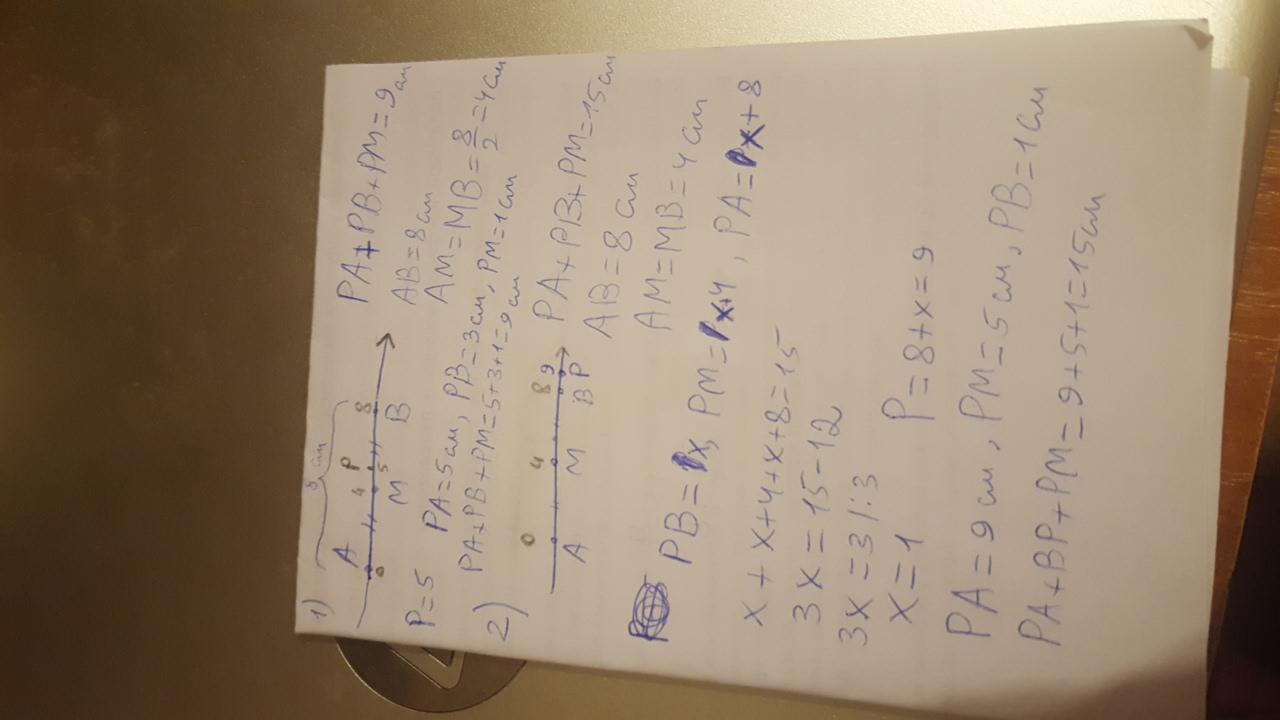 1)
8 см
A 4 P 8
0 M 5 B
PA+PB+PM=9см
AB=8см
AM=MB=8/2=4см
P=5
PA=5см, PB=3см, PM=1см
PA+PB+PM=5+3+1=9см
2)
0 4 8 9
A M B P
PA+PB+PM=15см
AB=8см
AM=MB=4см
PB=x, PM=x+4, PA=x+8
x+x+4+x+8=15
3x=15-12
3x=3/:3
x=1 P=8+x=9
PA=9см, PM=5см, PB=1см
PA+BP+PM=9+5+1=15см